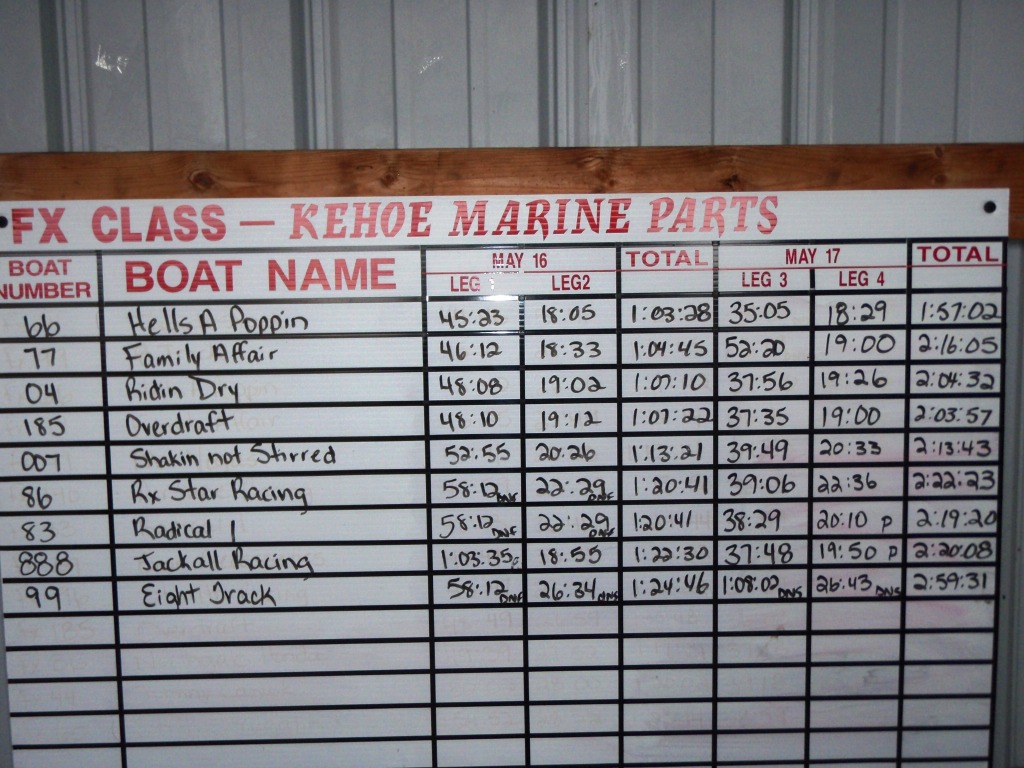 FX CLASS — KEHOE MARINE PARTS
BOAT NUMBER BOAT NAME MAY 16 TOTAL MAY 17 TOTAL
LEG LEG2 LEG 3 LEG 4
66 Hells A Poppin 45:23 18:05 1:03:28 35:05 18:29 1:57:02
77 Family Affair 46:12 18:33 1:04:45 52:20 19:00 2:16:05
04 Ridin Dry 48:08 19:02 1:07:10 37:56 19:26 2:04:32
185 Overdraft 48:10 19:12 1:07:22 37:35 19:00 2:03:57
007 Shakin not Stirred 52:55 20:26 1:13:21 39:49 20:33 2:13:43
86 Rx Star Racing 58:12 DNF 22:29 DNF 1:20:41 39:06 22:36 2:22:23
83 Radical 1 58:12 DNF 22:29 DNF 1:20:41 38:29 20:10 P 2:19:20
888 Jackall Racing 1:03:35 18:55 1:22:30 37:48 19:50 P 2:20:08
99 Eight Track 58:12 DNF 26:34 DNS 1:24:46 1:08:02 DNS 26:43 DNS 2:59:31